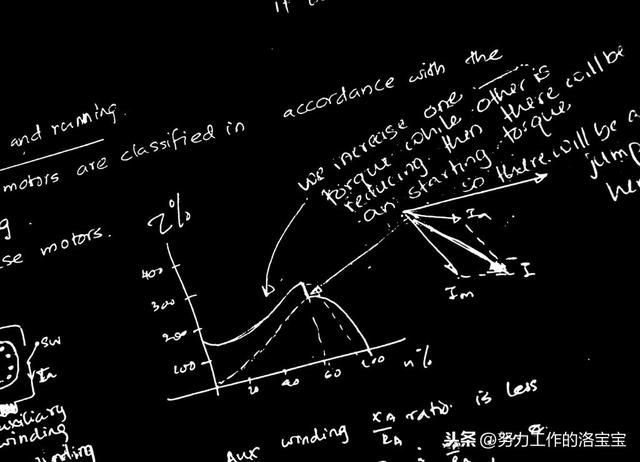 it
and running.
motors are classified in accordance with the
g.
se motors.
we increase one
torque while other is
reducing then there will be
an starting torque
so there will be a
jump
here
τ%
400
300
200
100
20
40
60
100
n%
Ia
I
Im
SW
Ia
auxiliary
winding
winding
Aux winding XA/RA ratio is less
头条 @努力工作的洛宝宝